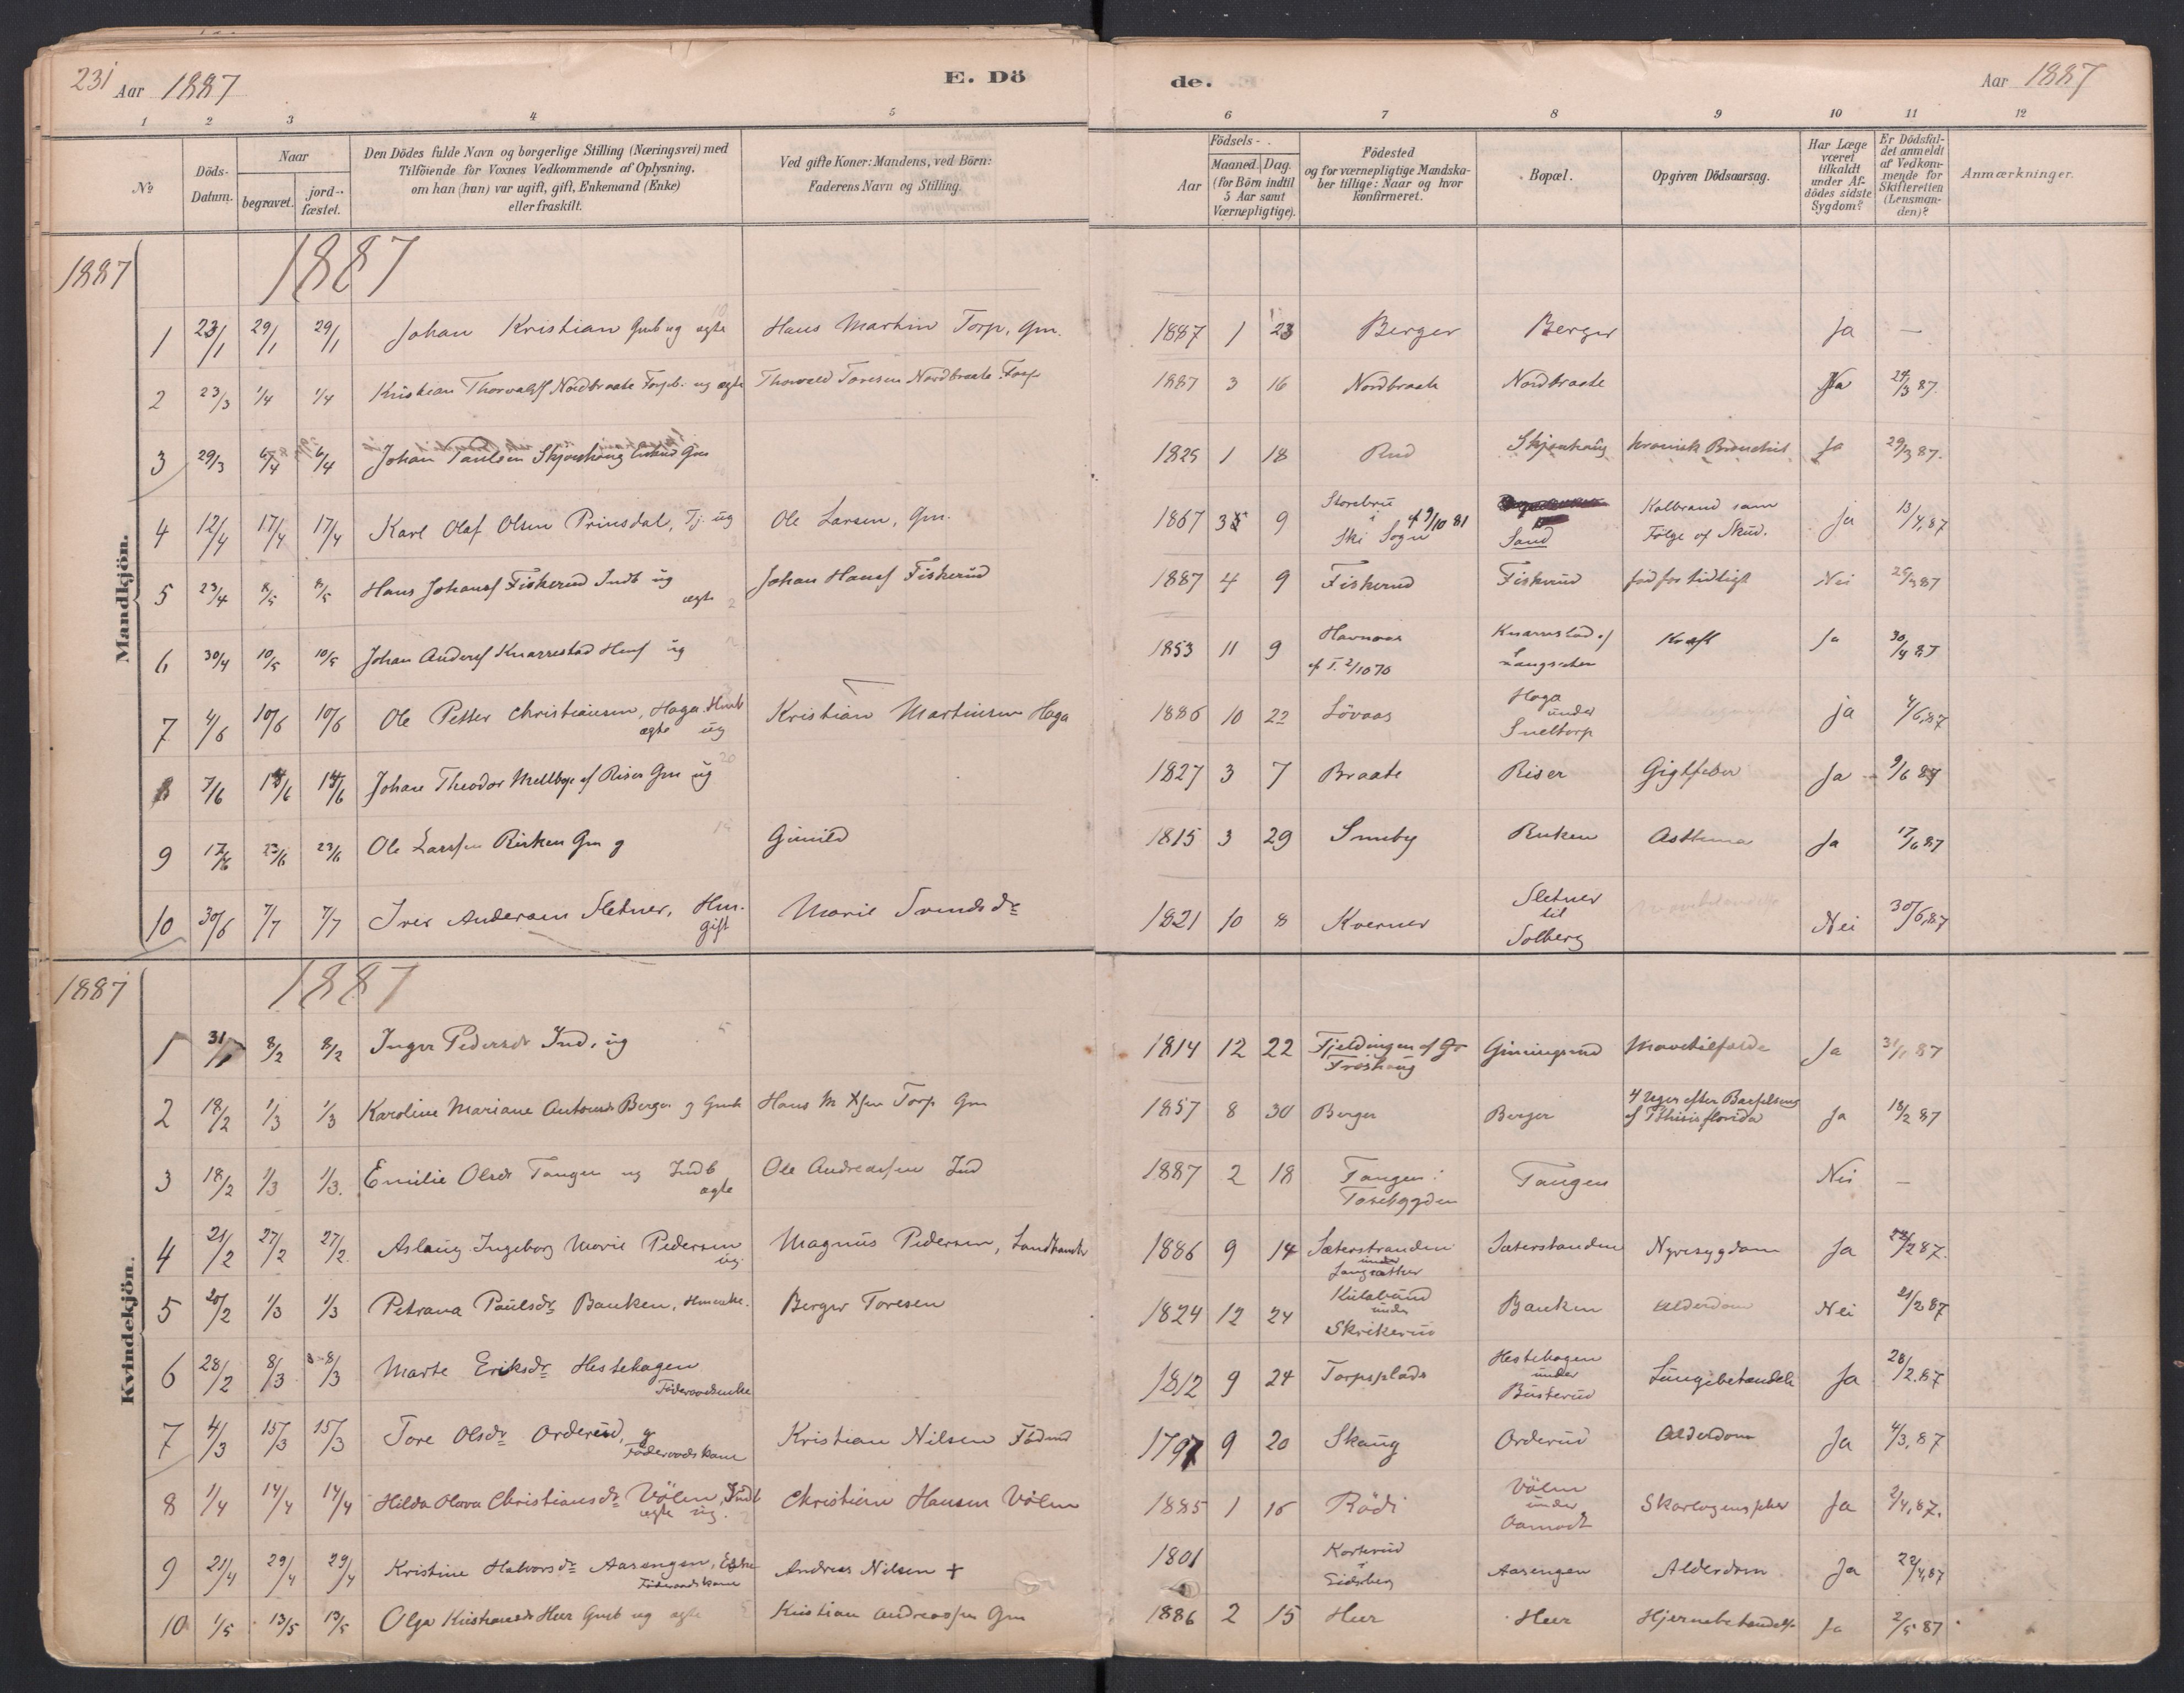 231 Aar 1887 E. Dö de. Aar 1887
1 2 3 4 5 6 7 8 9 10 11 12
No
Döds-Datum.
Naar
begravet.
jord-fæstet.
Den Dödes fulde Navn og borgerlige Stilling (Næringsvei) med
Tilföiende for Voxnes Vedkommende af Oplysning.
om han (hun) var ugift, gift, Enkemand (Enke)
eller fraskilt.
Ved gifte Koner: Mandens, ved Börn:
Faderens Navn og Stilling.
Födsels-
Aar
Maaned. Dag.
(for Börn indtil
5 Aar samt
Værnepligtige).
Födested
og for værnepligtige Mandska-
ber tillige: Naar og hvor
konfirmeret.
Bopæl.
Opgiven Dödsaarsag.
Har Læge
været
tilkaldt
under Af-
dödes sidste
Sygdom?
Er Dödsfal-
det anmeldt
af Vedkom-
mende for
Skifteretten
(Lensman-
den)?
Anmærkninger.
Mandkjön.
1887 1887
1 23/1 29/1 29/1 Johan Kristian Gmb ug ægte Hans Martin Torp, Gm. 1887 1 23 Berger Berger Ja —
2 23/3 1/4 1/4 Kristian Thorvalds Nordbraate Forpb. ug ægte Thorvald Toresen Nordbraate Forp 1887 3 16 Nordbraate Nordbraate Ja 24/3 87.
3 29/3 6/4 6/4 Johan Paulsen Skjønhaug Enkmd Gm 1825 1 18 Rud Skjønhaug kronisk Bronchit Ja 29/3 87.
4 12/4 17/4 17/4 Karl Olaf Olsen Prinsdal, Tj. ug Ole Larsen, Gm. 1867 3 9 Storebru i Ski Sogn 9/10 81 Sand Kolbrand som Følge af Skud. Ja 13/4, 87
5 23/4 8/5 8/5 Hans Johans Fiskerud Indb ug ægte Johan Hans Fiskerud 1887 4 9 Fiskerud Fiskerud fød for tidligt Nei
6 30/4 10/5 10/5 Johan Anders Knarrestad ug 1853 11 9 Havnaas Knarrestad Kræft Ja 30/4 87
7 4/6 10/6 10/6 Ole Petter Christiansen, Haga. Hmb ægte ug Kristian Martinsen Haga 1886 10 22 Lövaas Haga under Sneltorp ja 4/6, 87
8 7/6 14/6 14/6 Johan Theodor Mellbye af Riser Gm ug 1827 3 7 Braate Riser Gigtfeber Ja 9/6 87
9 17/6 23/6 23/6 Ole Larssen Rirken Gm g Gunild 1815 3 29 Smeby Asthma Ja 17/6 87
10 30/6 7/7 7/7 Iver Andersen Sletner, Hm. gift Marie Svendsdr 1821 10 8 Kverner Sletner til Solberg Nei 30/6, 87
Kvindekjön.
1887 1887
1 31/1 8/2 8/2 Inger Pedersdr Ind. ug 1814 12 22 Fjeldingen af Gr Froshaug Mavetilfælde Ja 31/1 87
2 18/2 1/3 1/3 Karoline Mariane Antonsd Berger g Gmk Hans M Torp Gm 1857 8 30 Berger Berger 4 Uger efter Barselseng af Phtisis florida Ja 18/2 87
3 18/2 1/3 1/3. Emilie Olsdr Tangen ug Indb ægte Ole Andreassen Ind 1887 2 18 Tangen i Tosebygden Tangen Nei —
4 21/2 27/2 27/2. Aslaug Ingeborg Marie Pedersen ug. Magnus Pedersen, Landhandl 1886 9 14 Sæterstranden under Langsæther Sæterstranden Nyresygdom Ja 22/2 87.
5 20/2 1/3 1/3 Petrana Paulsdr Banken, Hmenke. Berger Toresen 1824 12 24 Kulabund under Skrikerud Banken Alderdom Nei 21/2 87
6 28/2 8/3 8/3 Marte Eriksdr Hestehagen Föderaadsenke 1812 9 24 Torpsplads Hestehagen under Busterud Lungebetændelse Ja 28/2. 87
7 4/3 15/3 15/3 Tore Olsdr Orderud, g Föderaadskone Kristian Nilsen Födmd 1797 9 20 Skaug Orderud Alderdom Ja 4/3, 87
8 1/4 14/4 14/4 Hilda Olava Christiansdr Völen, Indb ægte ug. Christian Hansen Völen 1885 1 16 Rödi Völen under Aamodt Skarlagensfeber Ja 2/4, 87.
9 21/4 29/4 29/4 Kristine Halvorsdr Aasengen, Enke Föderaadskone Andreas Nilsen + 1801 Korterud i Eidsberg Aasengen Alderdom Ja 22/4, 87
10 1/5 13/5 13/5 Olga Kristiansdr Heer Gmb ug ægte Kristian Andreassen Gm 1886 2 15 Heer Heer Hjernebetændelse Ja 2/5 87